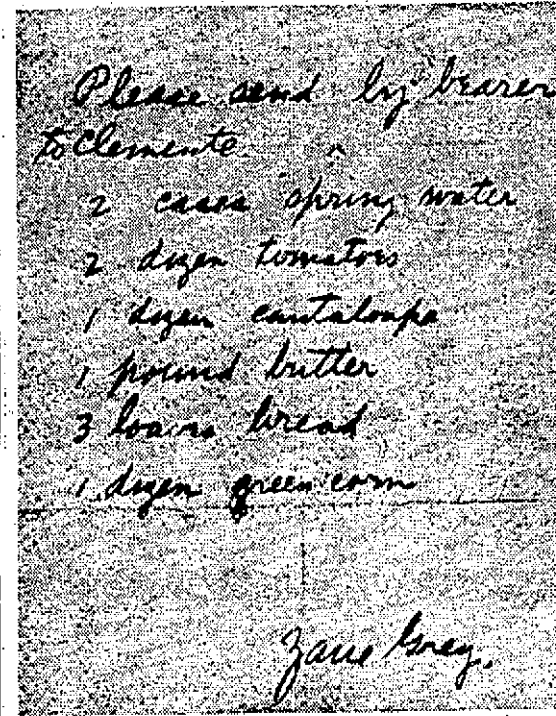 Please send by bearer
to Clemente.
2 cases spring water
2 dozen tomatoes
1 dozen cantaloupe
1 pound butter
3 loaves bread
1 dozen green corn
Zane Grey.